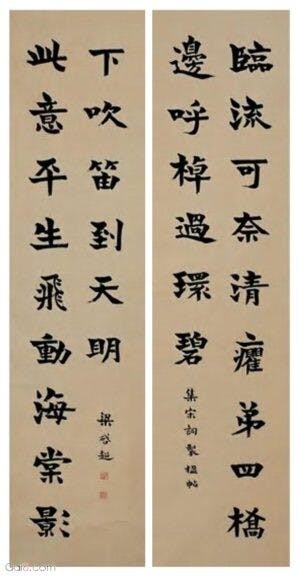 臨流可奈清癯弟四橋
邊呼棹過環碧
集宋詞製楹帖
此意平生飛動海棠影
下吹笛到天明
梁啓超